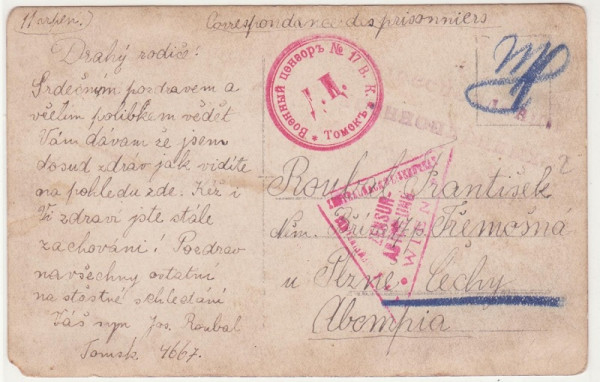 11 srpen.)
Correspondance des prisonniers
Drahý rodiče!
Srdečným pozdravem a
vřelim polibkem vědět
Vám dávam že jsem
dosud zdráv jak vidíte
na pohledu zde. Kéž i
Vi zdraví jste stále
zachováni! Pozdrav
na všechny ostatní
na šťastné schledání
Váš syn Jos. Roubal
Tomsk. 4667.
Военный цензоръ № 17 В. К.
Томскъ
Roubal František
Třemošná
u Plzně Čechy
ZENSUR
ABTEILUNG
WIEN